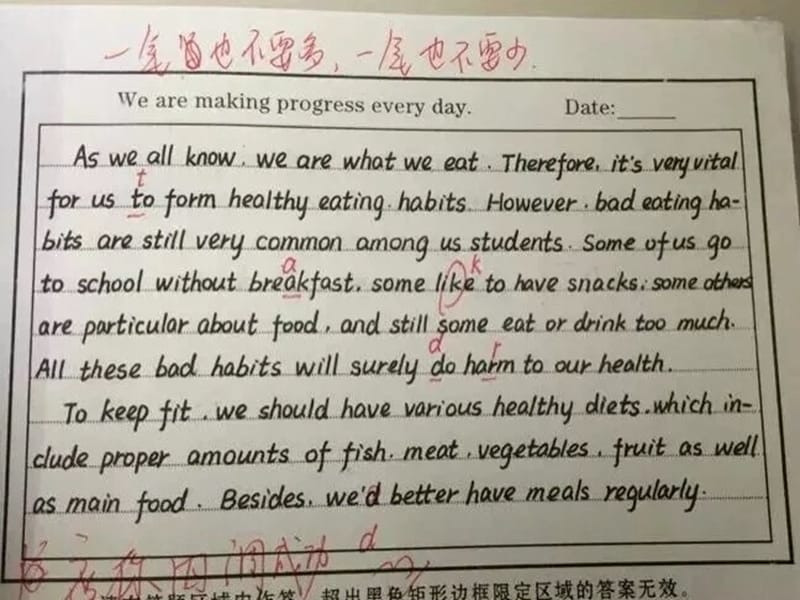 一尾留也不要多，一尾也不要少.
We are making progress every day. Date:
As we all know, we are what we eat. Therefore, it's very vital
t
for us to form healthy eating habits. However, bad eating ha-
bits are still very common among us students. Some of us go
a k
to school without breakfast, some like to have snacks; some others
are particular about food, and still some eat or drink too much.
d r
All these bad habits will surely do harm to our health.
To keep fit, we should have various healthy diets, which in-
clude proper amounts of fish, meat, vegetables, fruit as well
as main food. Besides, we'd better have meals regularly.
成功 d
请在答题区域内作答，超出黑色矩形边框限定区域的答案无效。